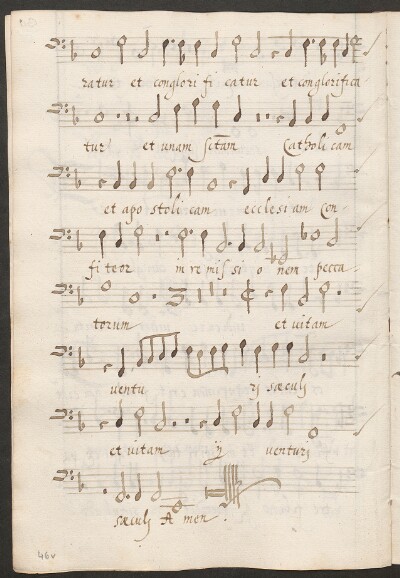 ratur et conglori fi catur et conglorifica
tur et unam sctam Catholi cam
et apo stoli cam ecclesi am Con
fi teor in re mis si o nem pecca
torum et uitam
ventu rj sæculj
et uitam ij venturj
sæculj A men.
46v